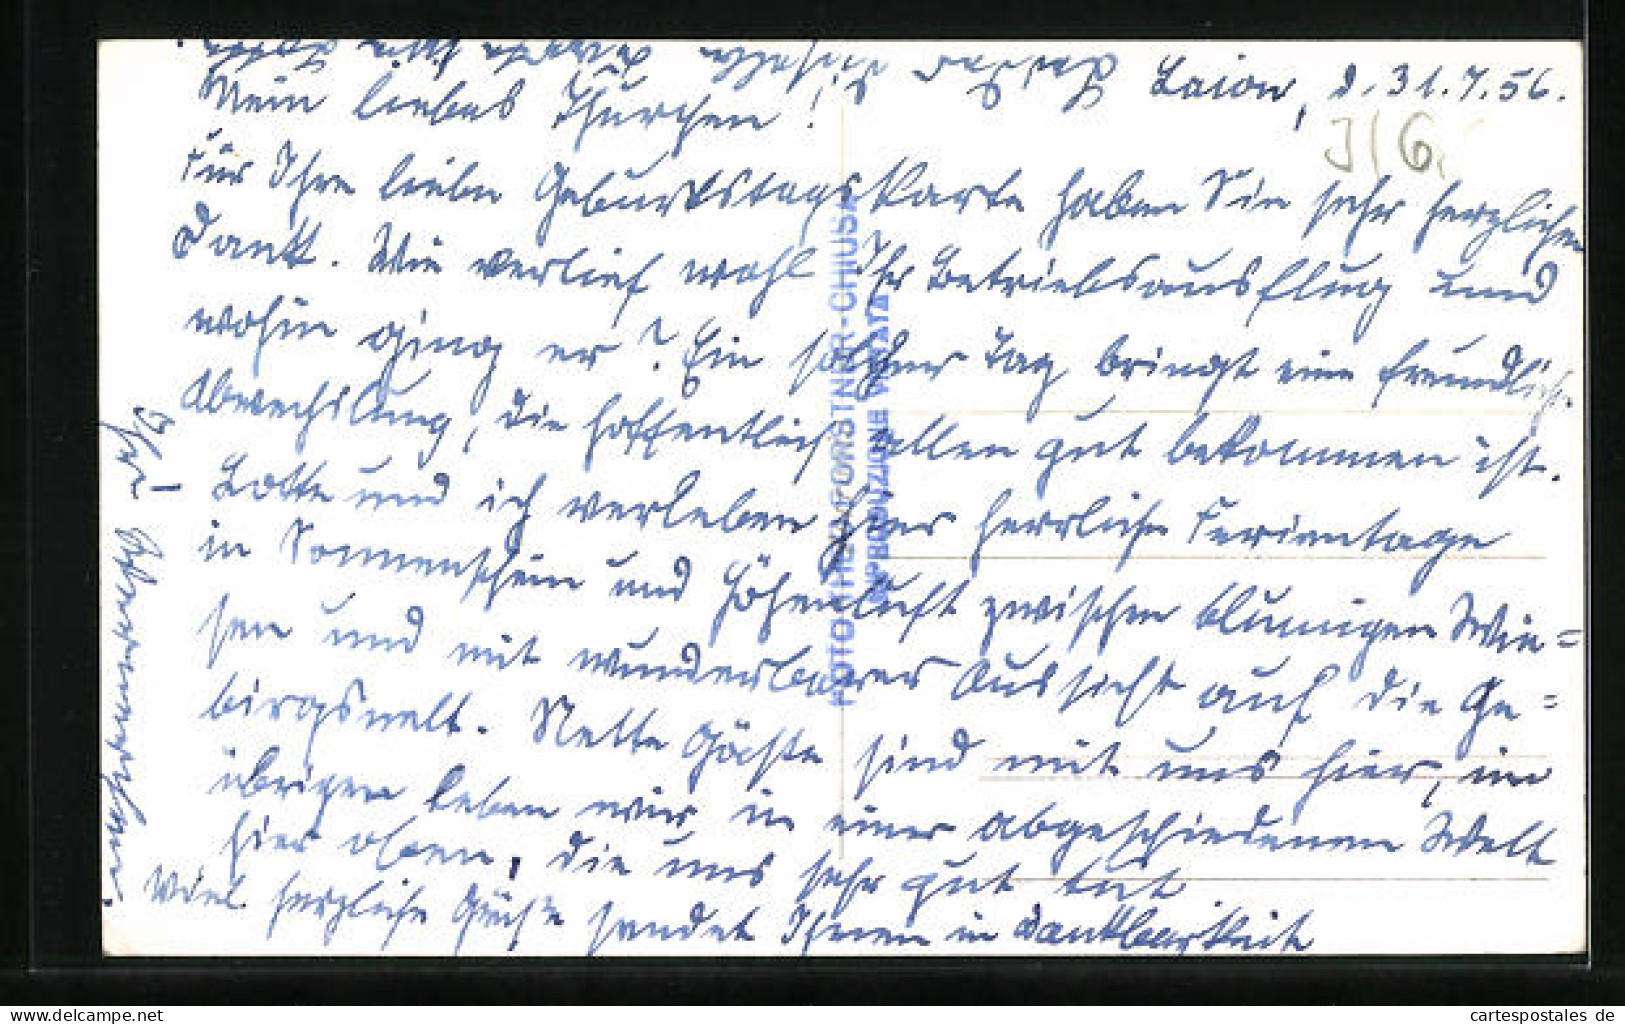 Laion, d. 31.7.56.
Mein liebes Thürchen!
Für Ihre liebe Geburtstagskarte haben Sie sehr herzlichen
Dank. Wie verlief wohl Ihr Betriebsausflug und
wohin ging er? Ein solcher Tag bringt eine freundliche
Abwechslung, die hoffentlich allen gut bekommen ist.
Lotte und ich verleben hier herrliche Ferientage
in Sonnenschein und Höhenluft zwischen blumigen Wie=
sen und mit wunderbarer Aussicht auf die Ge=
birgswelt. Nette Gäste sind mit uns hier, im
übrigen leben wir in einer abgeschiedenen Welt
hier oben, die uns sehr gut tut
Viel herzliche Grüße sendet Ihnen in Dankbarkeit
Ihre
J/6
FOTOTHEK FORSTNER-CHIUSA
RIPRODUZIONE VIETATA
hiv225
cartespostales de